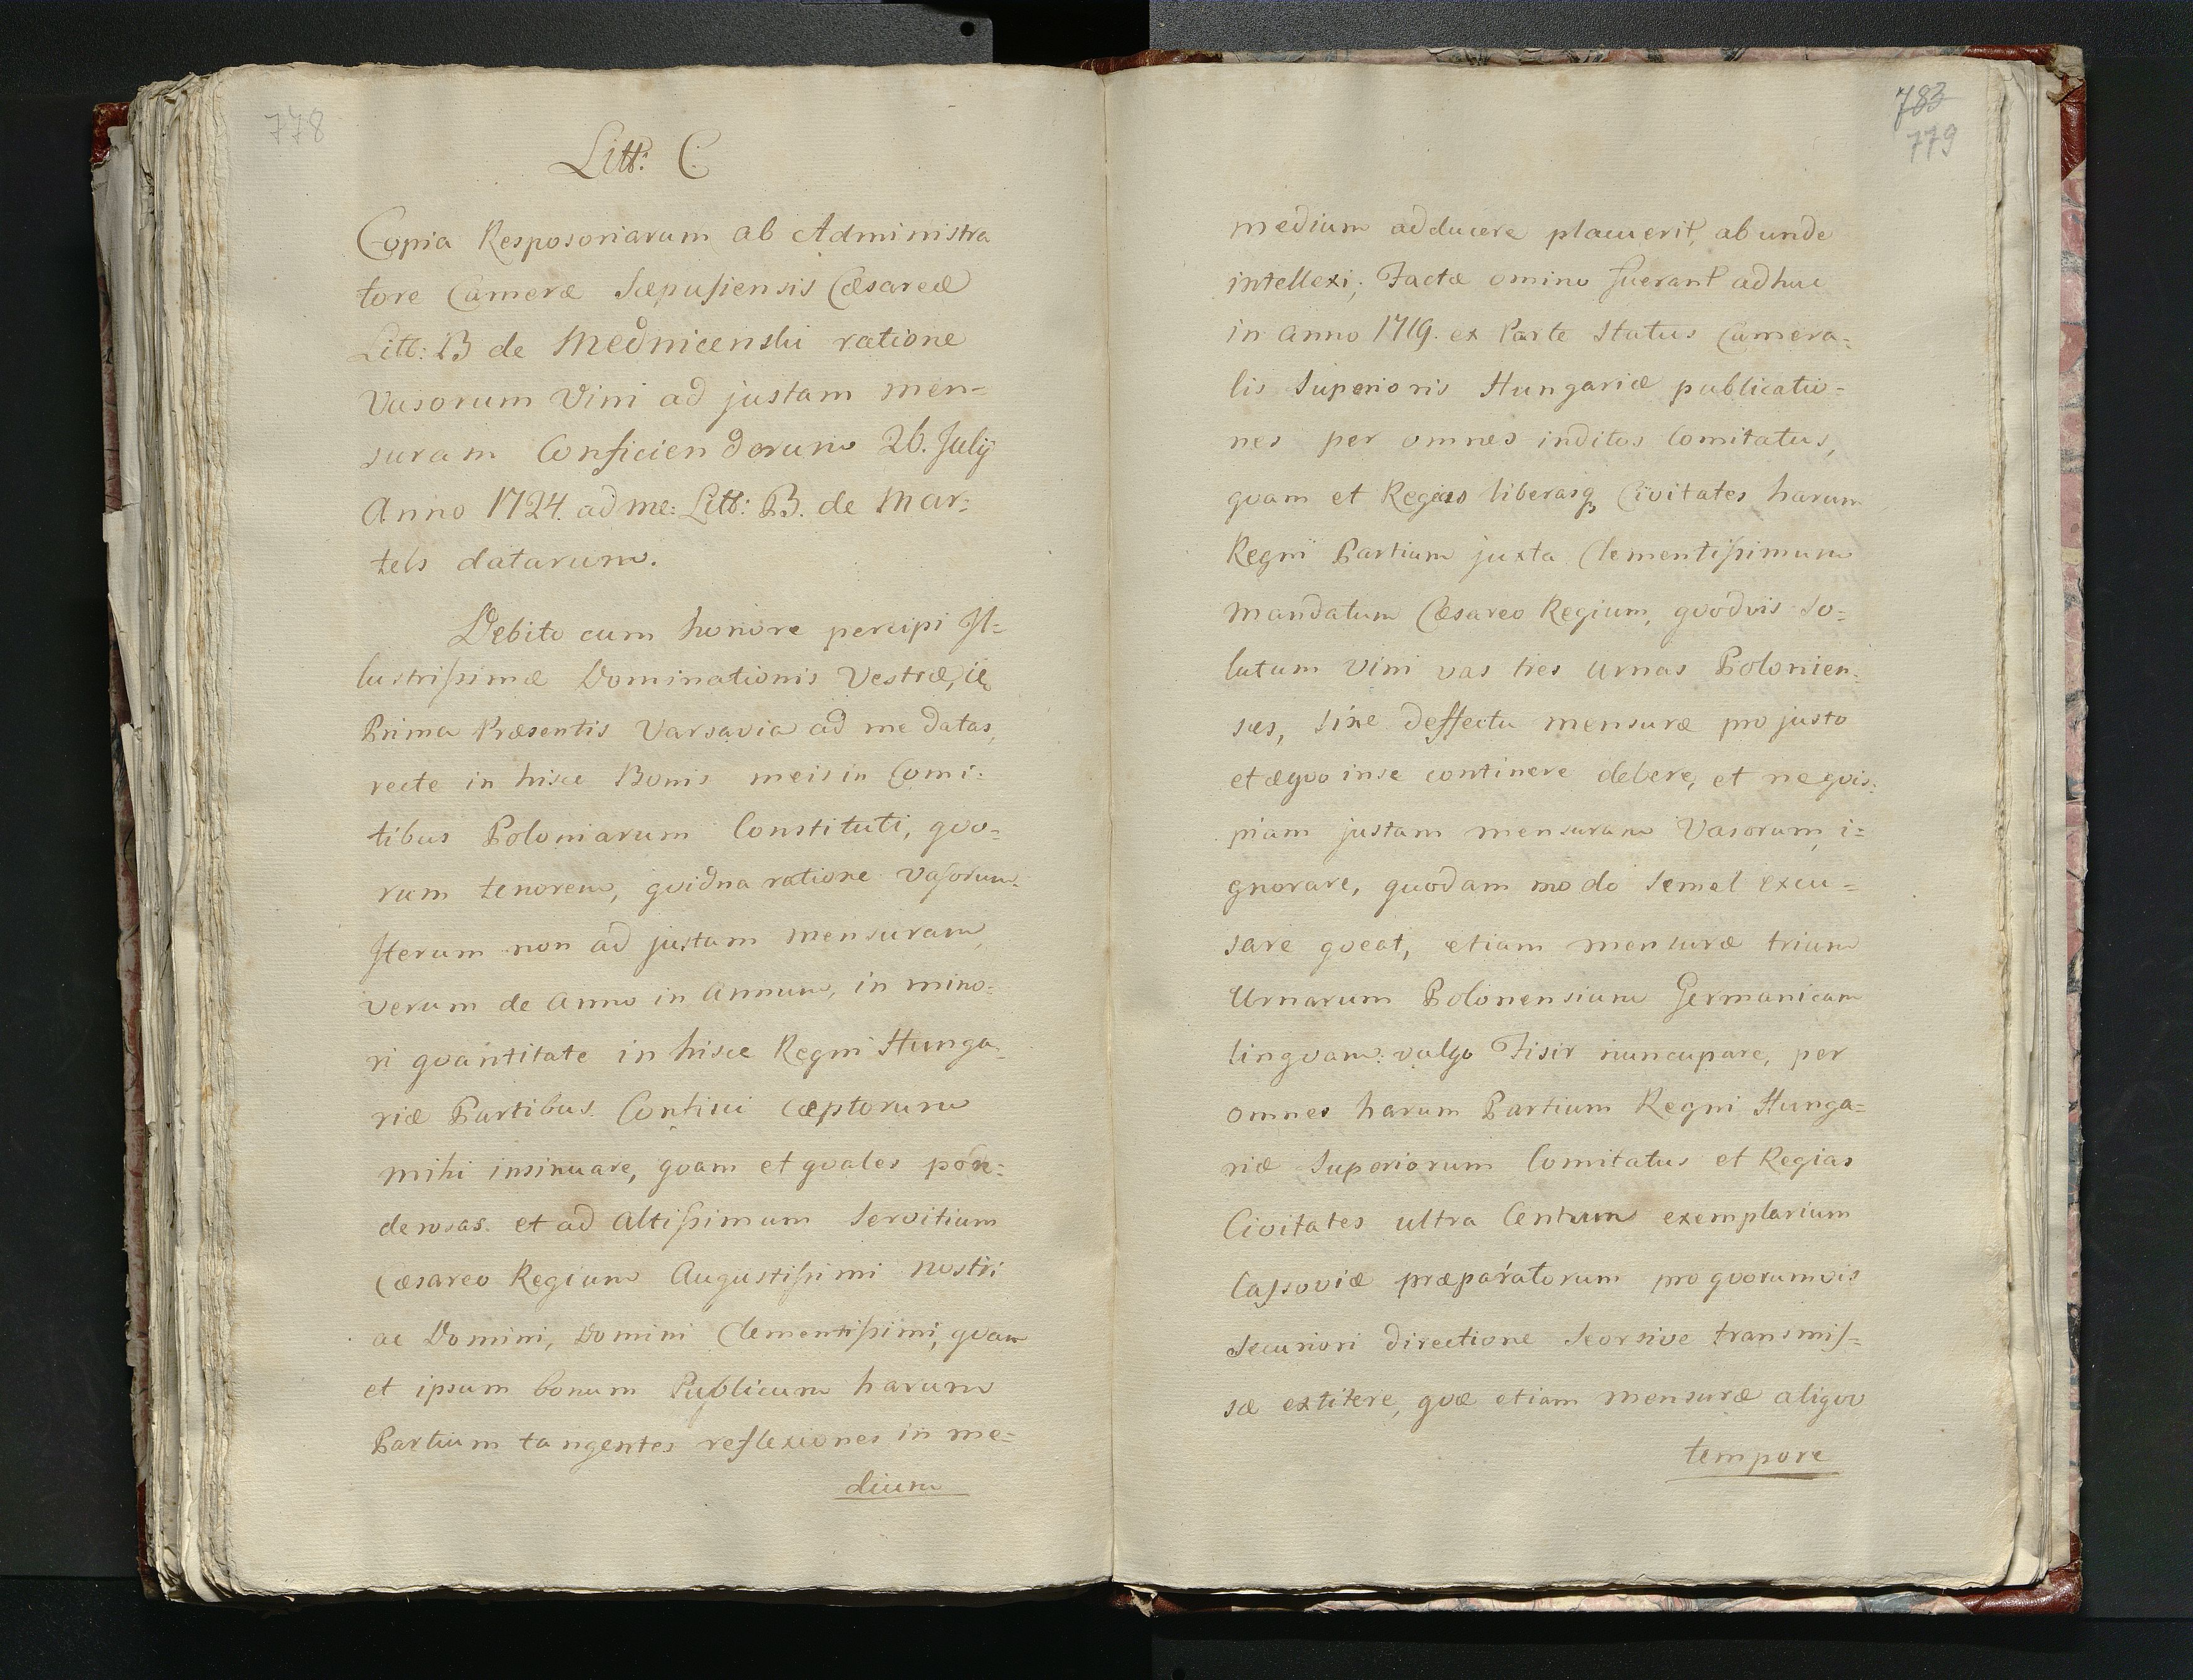 778
Litt: C.
Copia Resposoriarum ab Administra
tore Cameræ Scepusiensis Cæsareæ
Litt: B de Mednicenski ratione
Vasorum Vini ad justam men=
suram Conficiendorum 26. Julij
Anno 1724. ad me: Litt: B. de Mar=
tels datarum.
Debito cum honore percipi Il=
lustrissimæ Dominationis Vestræ,
Prima Præsentis Varsavia ad me datas,
recte in hisce Bonis meis in Comi=
tibus Poloniarum Constituti, quo=
rum tenorem, quidna ratione Vasorum
Iterum non ad justam mensuram,
verum de Anno in Annum, in mino=
ri quantitate in hisce Regni Hunga=
riæ Partibus Confisci cæptorum
mihi insinuare, quam et quales pon=
derosas et ad Altissimum Servitium
Cæsareo Regium Augustissimi nostri
ac Domini, Domini Clementissimi, quam
et ipsum bonum Publicum harum
Partium tangentes reflexiones in me=
dium
783
779
medium adducere placuerit, ab unde
intellexi; Factæ omino fuerant adhuc
in anno 1719. ex Parte Status Camera=
lis Superioris Hungariæ publicatio=
nes per omnes inditos Comitatus,
quam et Regias liberasq Civitates harum
Regni Partium juxta Clementissimum
Mandatum Cæsareo Regium, quodvis so=
lutum vini vas tres urnas Polonien=
ses, sine deffectu mensuræ pro justo
et æquo in se continere debere, et ne quis=
piam justam mensuram Vasorum i=
gnorare, quodam modo semel excu=
sare queat, etiam mensuræ trium
Urnarum Polonensium Germanicam
linguam: vulgo Fisir nuncupare, per
omnes harum Partium Regni Hunga=
riæ Superiorum Comitatus et Regias
Civitates ultra Centum exemplarium
Cassoviæ præparatorum pro quorumvis
Securiori directione seorsive transmis=
sæ extitere, quæ etiam mensuræ aliquo
tempore